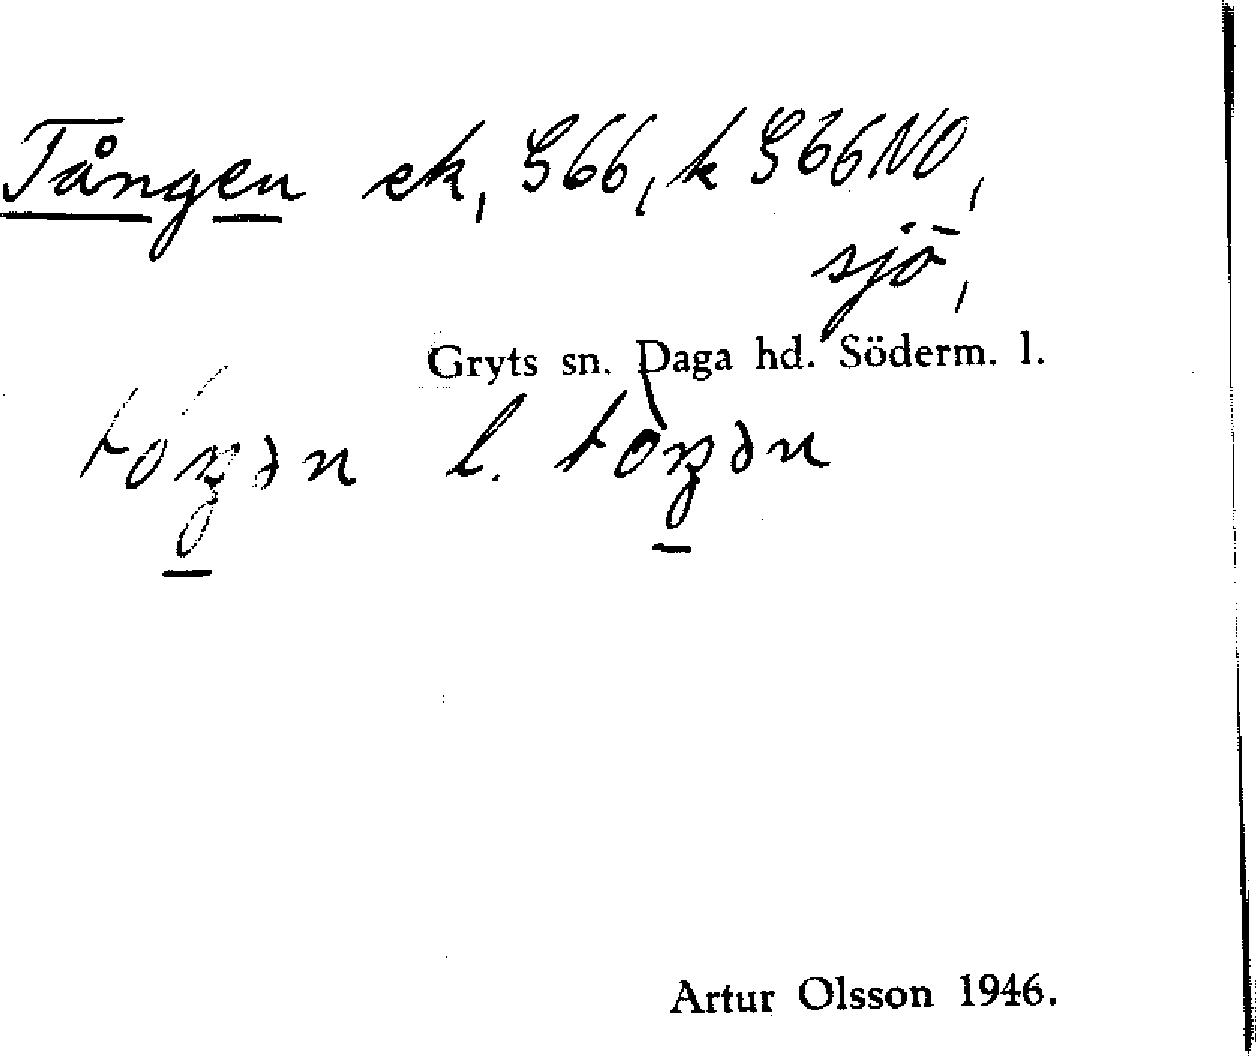 Tången ek, G66, k G66NO,
sjö,
Gryts sn. Daga hd. Söderm. l.
l.
Artur Olsson 1946.